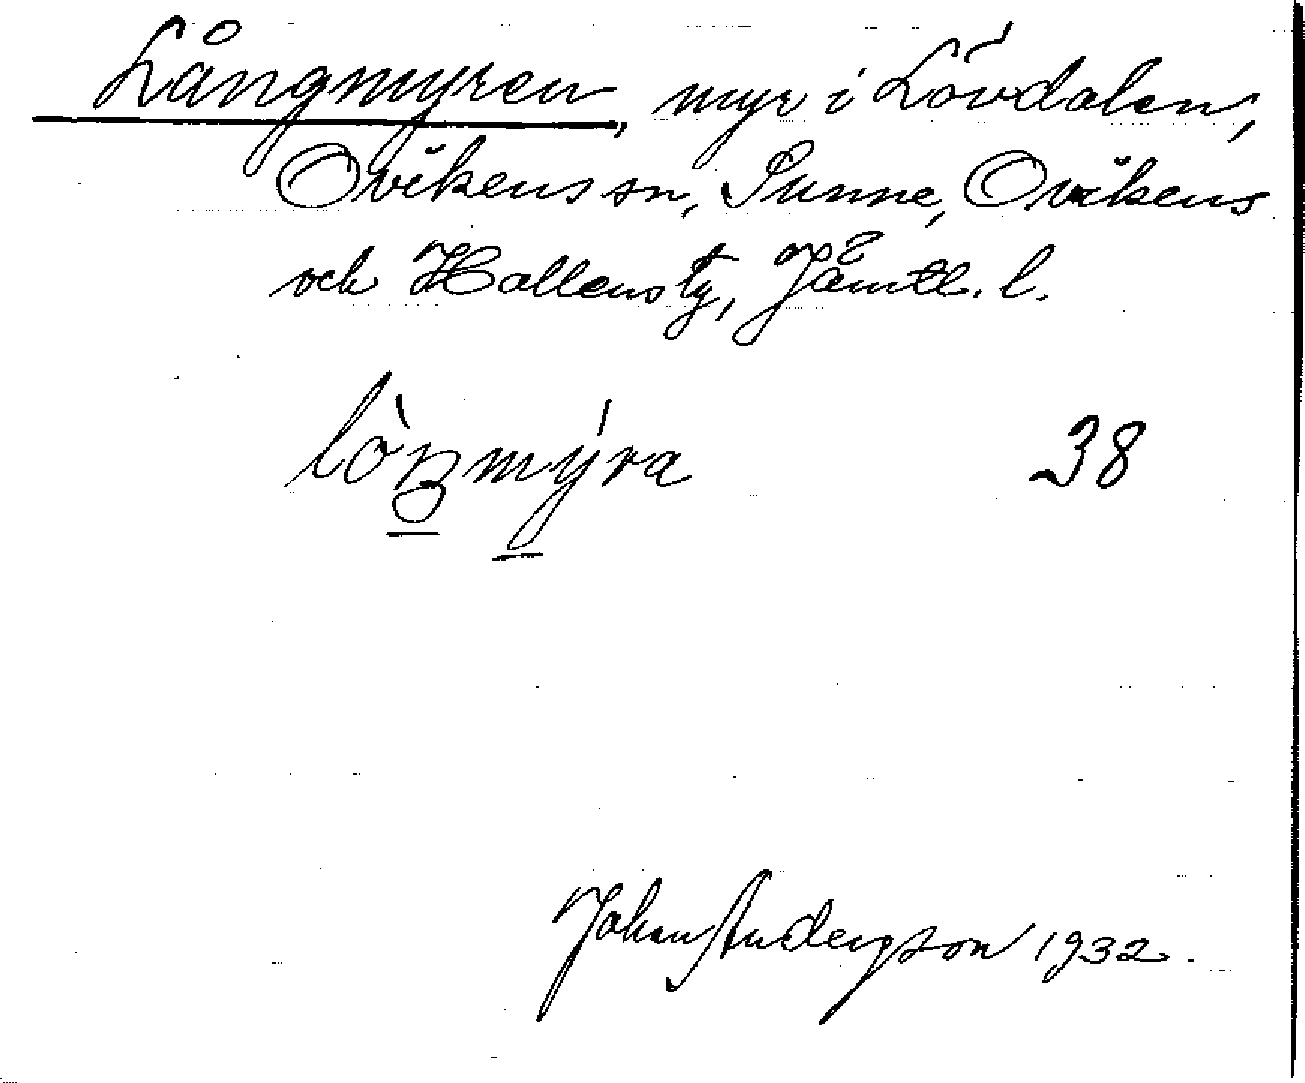 Långmyren, myr i Lövdalen,
Ovikens sn, Sunne, Ovikens
och Hallens tg, Jämtl. l.
lòŋmýra 38
Johan Anderson 1932.